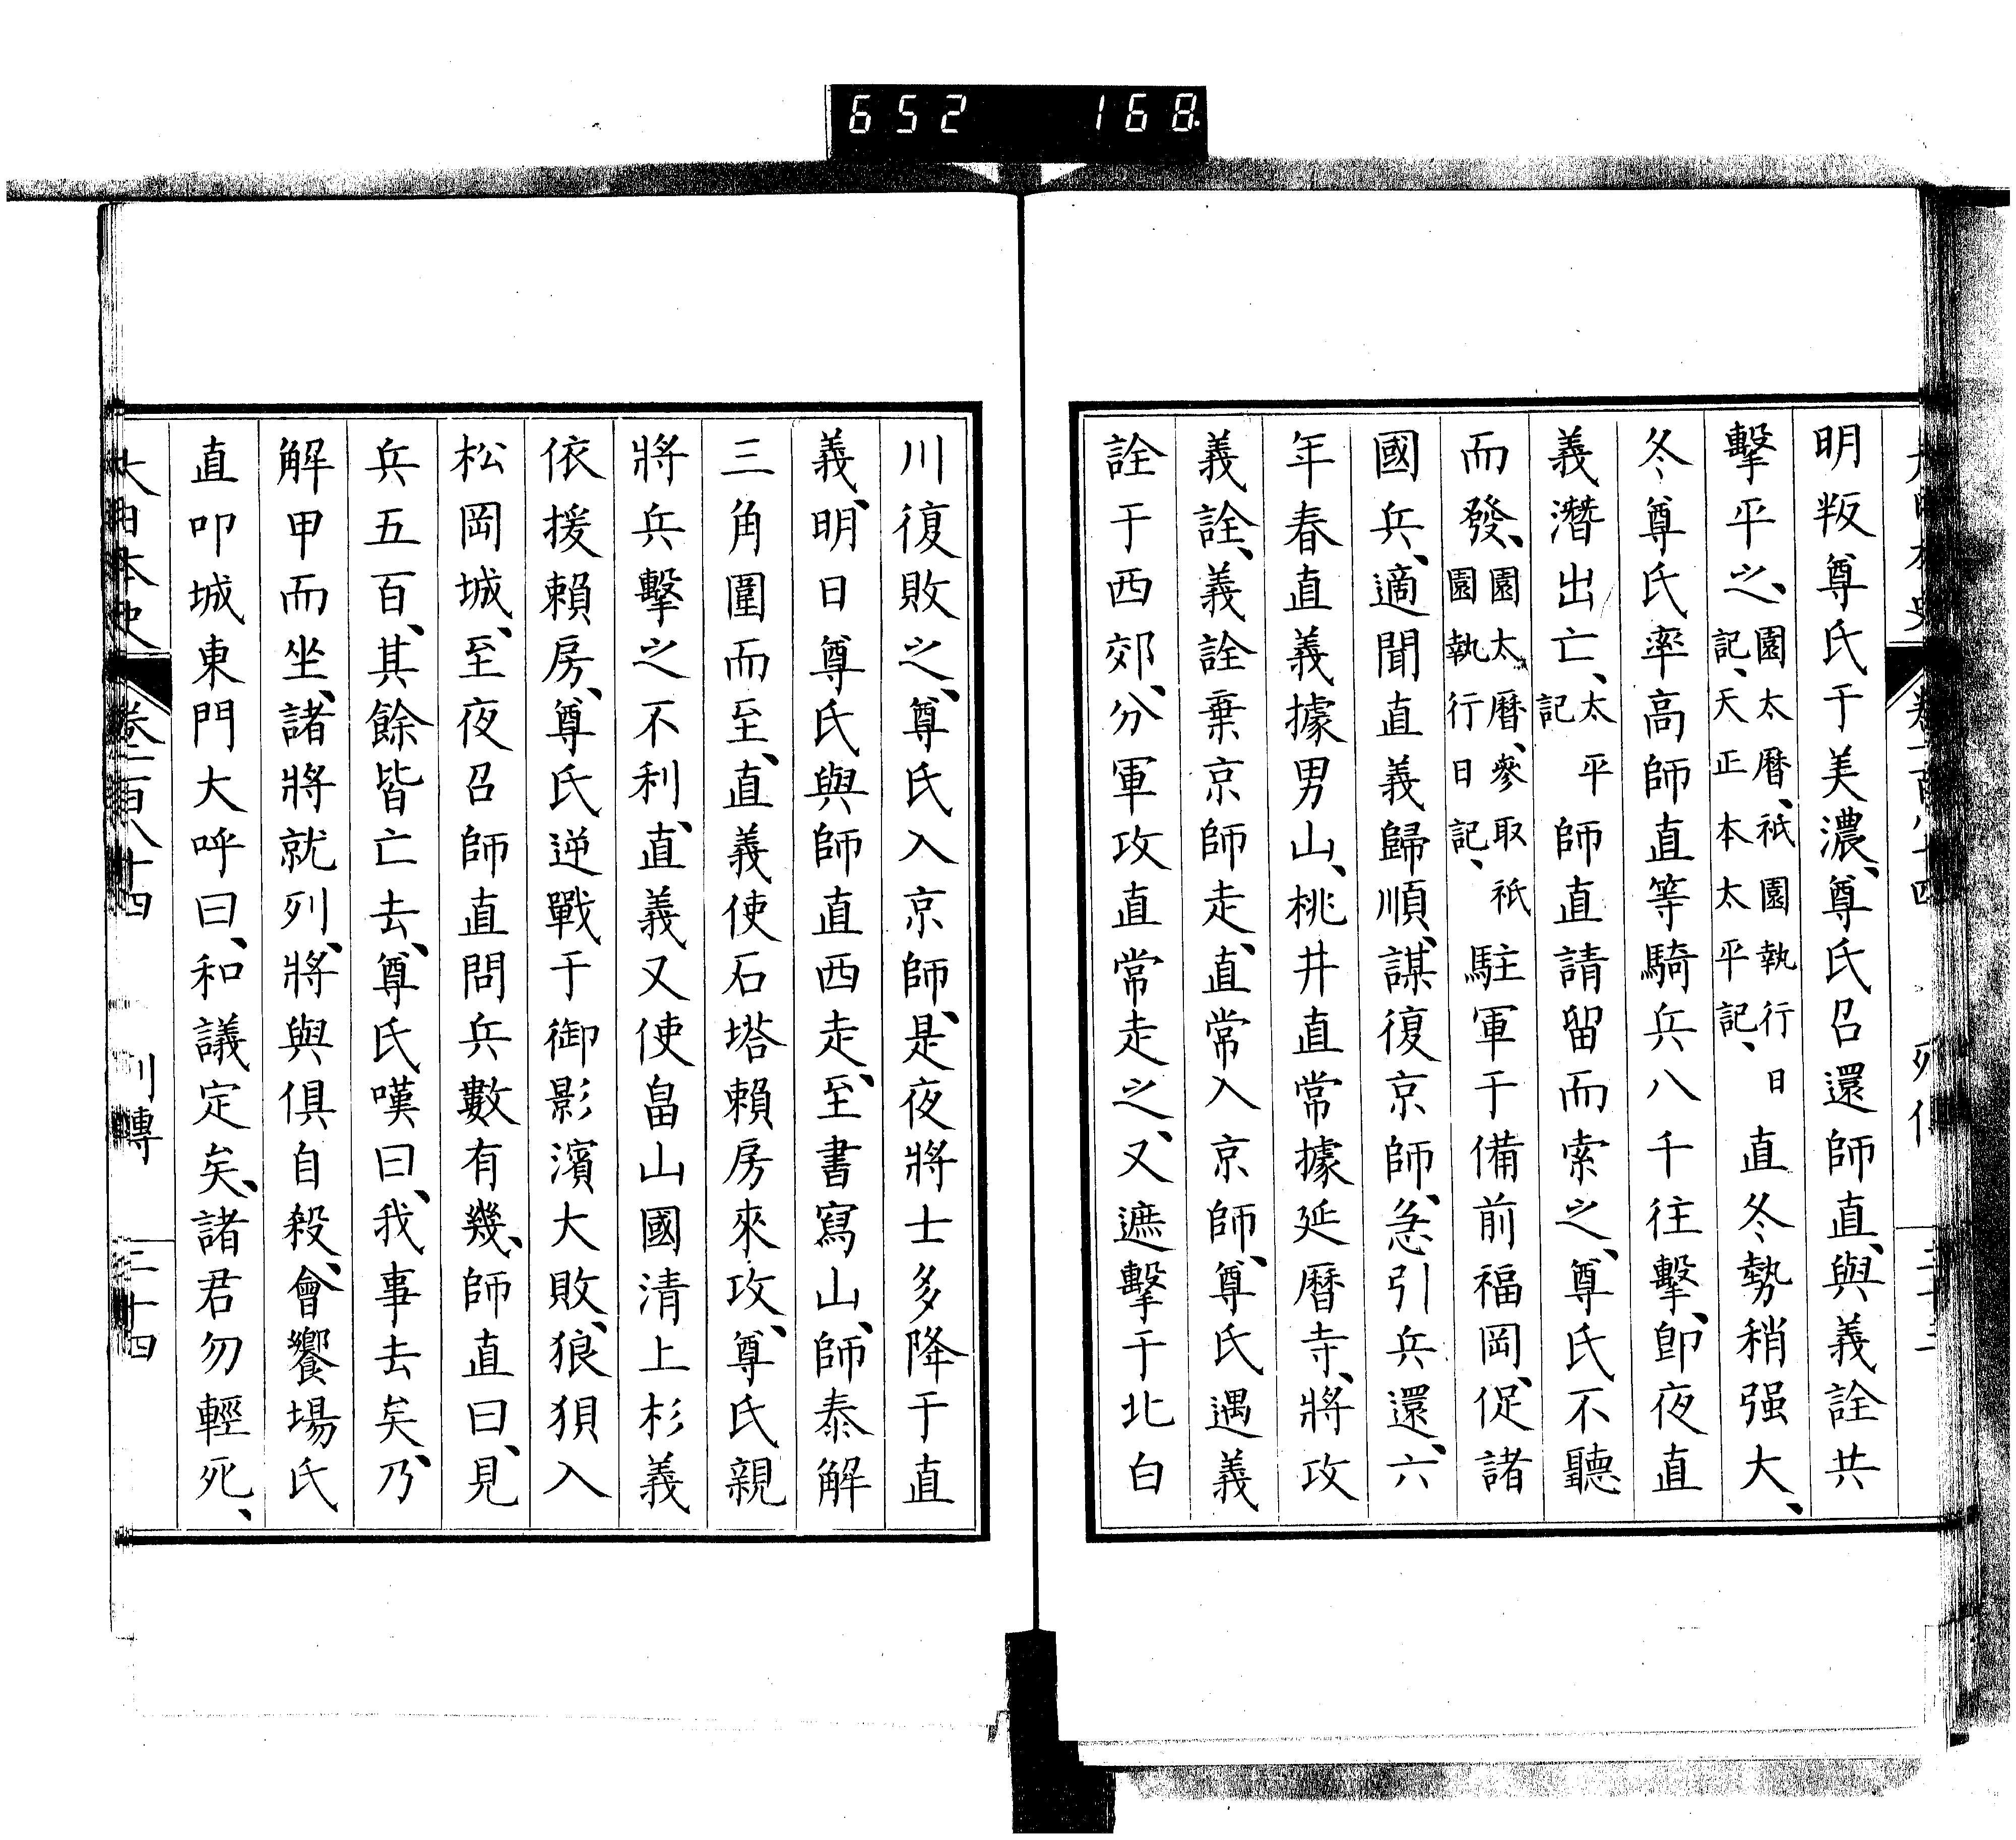 652 168
明叛尊氏于美濃、尊氏召還師直、與義詮共
擊平之、園太曆、祇園執行日記、天正本太平記、直冬勢稍强大、
冬、尊氏率高師直等騎兵八千往擊、卽夜直
義潛出亡、太平記師直請留而索之、尊氏不聽
而發、園太曆、參取祇園執行日記、駐軍于備前福岡、促諸
國兵、適聞直義歸順、謀復京師、急引兵還、六
年春直義據男山、桃井直常據延曆寺、將攻
義詮、義詮棄京師走、直常入京師、尊氏遇義
詮于西郊、分軍攻直常走之、又遮擊于北白
川復敗之、尊氏入京師、是夜將士多降于直
義、明日尊氏與師直西走、至書寫山、師泰解
三角圍而至、直義使石塔賴房來攻、尊氏親
將兵擊之不利、直義又使畠山國清上杉義
依援賴房、尊氏逆戰于御影濱大敗、狼狽入
松岡城、至夜召師直問兵數有幾、師直曰、見
兵五百、其餘皆亡去、尊氏嘆曰、我事去矣、乃
解甲而坐、諸將就列、將與俱自殺、會饗場氏
直叩城東門大呼曰、和議定矣、諸君勿輕死、
大日本史 卷一百八十四 列傳 三十四